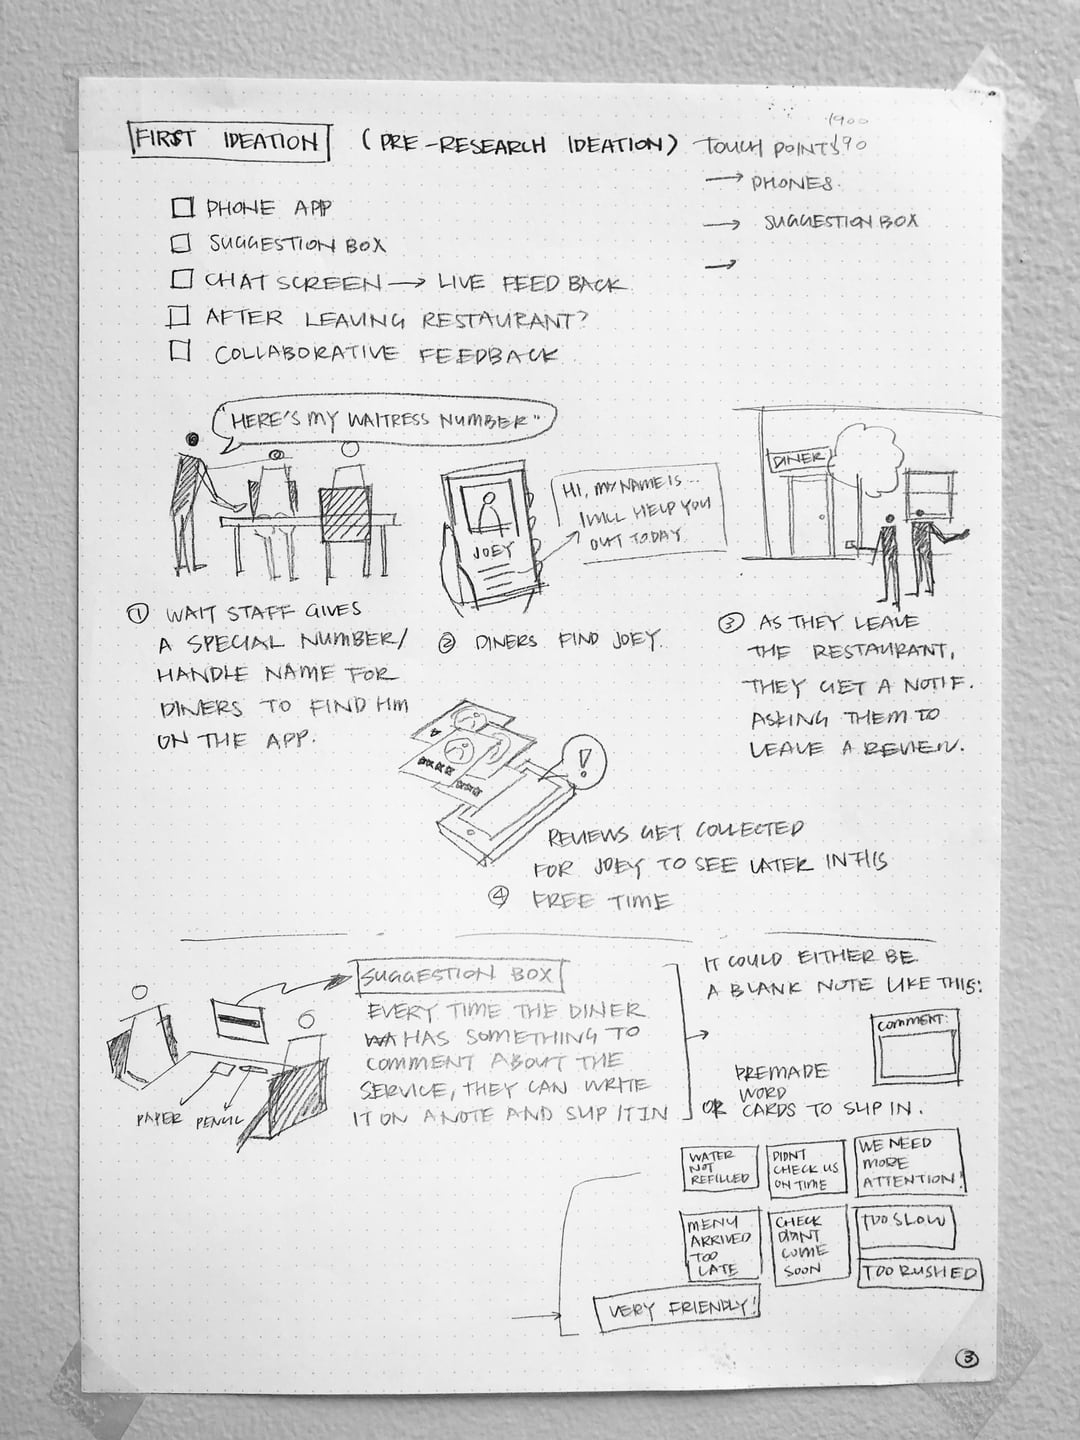 FIRST IDEATION (PRE-RESEARCH IDEATION)
PHONE APP
SUGGESTION BOX
CHAT SCREEN → LIVE FEEDBACK
AFTER LEAVING RESTAURANT?
COLLABORATIVE FEEDBACK
1900
TOUCH POINTS 90
→ PHONES.
→ SUGGESTION BOX
→
"HERE'S MY WAITRESS NUMBER"
① WAIT STAFF GIVES
A SPECIAL NUMBER/
HANDLE NAME FOR
DINERS TO FIND HIM
ON THE APP.
JOEY
HI, MY NAME IS...
I WILL HELP YOU
OUT TODAY
② DINERS FIND JOEY.
DINER
③ AS THEY LEAVE
THE RESTAURANT,
THEY GET A NOTIF.
ASKING THEM TO
LEAVE A REVIEW.
!
REVIEWS GET COLLECTED
FOR JOEY TO SEE LATER IN HIS
④ FREE TIME
SUGGESTION BOX
EVERY TIME THE DINER
HAS SOMETHING TO
COMMENT ABOUT THE
SERVICE, THEY CAN WRITE
IT ON A NOTE AND SLIP IT IN
PAPER PENCIL
IT COULD EITHER BE
A BLANK NOTE LIKE THIS:
COMMENT:
PREMADE
WORD
OR CARDS TO SLIP IN.
WATER
NOT
REFILLED
DIDNT
CHECK US
ON TIME
WE NEED
MORE
ATTENTION!
MENU
ARRIVED
TOO
LATE
CHECK
DIDNT
COME
SOON
TOO SLOW
TOO RUSHED
VERY FRIENDLY!
③